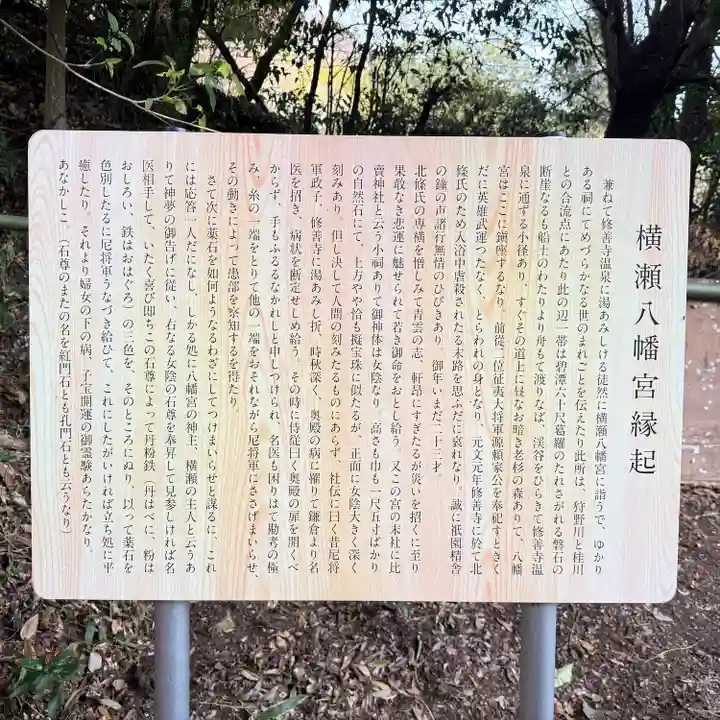 横瀬八幡宮縁起
兼ねて修善寺温泉に湯あみしける徒然に横瀬八幡宮に詣うで、ゆかり
ある祠にてめづらかなる世のまれごとを伝えたり此所は、狩野川と桂川
との合流点にあたり此の辺一帯は碧潭六十尺葛羅のたれさがれる磐石の
断崖なるも船土のわたりより舟もて渡りなば、渓谷をひらきて修善寺温
泉に通ずる小径あり、すぐその道上に昼なお暗き老杉の森ありて、八幡
宮はここに鎮座するなり、前従二位征夷大将軍源頼家公を奉祀すときく
だに英雄武運つたなく、とらわれの身となり、元文元年修善寺に於て北
條氏のため入浴中虐殺されたる末路を思ふだに哀れなり。誠に祇園精舎
の鐘の声諸行無情のひびきあり、御年いまだ二十三才。
北條氏の専横を憎しみて青雲の志、軒昂にすぎたるが災いを招くに至り
果敢なき悲運に魅せられて若き御命をおとし給う。又この宮の末社に比
賣神社と云う小祠ありて御神体は女陰なり。高さも巾も一尺五寸ばかり
の自然石にて、上方やや恰も擬宝珠に似たるが、正面に女陰大きく深く
刻みあり、但し決して人間の刻みたるものにあらず、社伝に曰く昔尼将
軍政子、修善寺に湯あみし折、時秋深く、奥殿の病に罹りて鎌倉より名
医を招き、病状を断定せしめ給う、その時に侍従曰く奥殿の扉を開くべ
からず、手もふるるなかれしと申しつけられ、名医も困りはて勘考の極
み、糸の一端をとりて他の一端をおそれながら尼将軍にささげまいらせ、
その動きによって患部を察知するを得たり。
さて次に薬石を如何ようなるわざにしてつけまいらせと謀るに、これ
には応答一人だになし、しかる処に八幡宮の神主、横瀬の主人と云うあ
りて神夢の御告げに従い、右なる女陰の石尊を奉昇して見参しければ名
医相手して、いたく喜び即ちこの石尊によって丹粉鉄（丹はべに、粉は
おしろい、鉄はおはぐろ）の三色を、そのところにぬり、以って薬石を
色別したるに尼将軍うなづき給ひて、これにしたがいければ立ち処に平
癒したり。それより婦女の下の病、子宝開運の御霊験あらたかなり。
あなかしこ。（石尊のまたの名を紅門石とも孔門石とも云うなり）